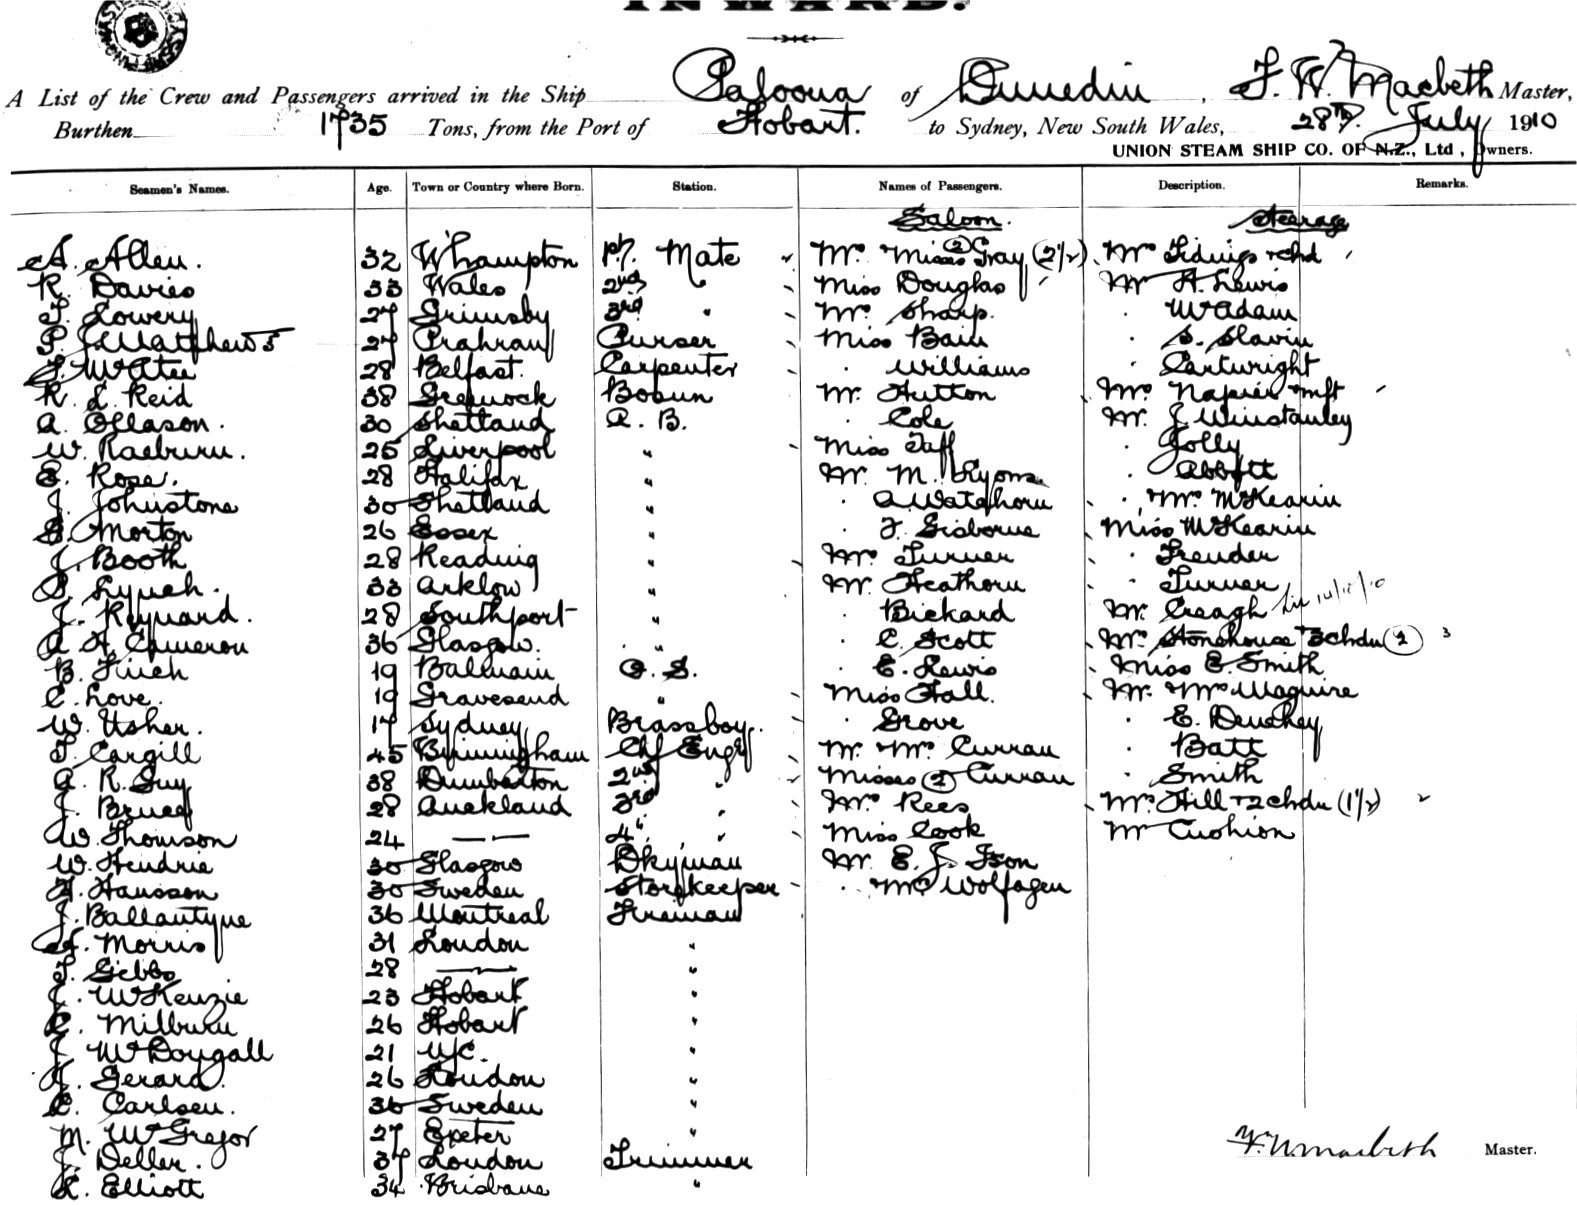 INWARD.
A List of the Crew and Passengers arrived in the Ship Paloona of Dunedin, F. W. Macbeth Master,
Burthen 1735 Tons, from the Port of Hobart. to Sydney, New South Wales, 28th July 1910
UNION STEAM SHIP CO. OF N.Z., Ltd, Owners.
Seamen's Names. Age. Town or Country where Born. Station. Names of Passengers. Description. Remarks.
Saloon. Steerage
A. Allen. 32 W'hampton 1st Mate Mrs Misses (2) Gray (2 1/2) Mrs Tidings + chd
R. Davies 33 Wales 2nd " Miss Douglas Mr A. Lewis
T. Lowery 27 Grimsby 3rd " Mrs Sharp. " McAdam
P. J. Matthews 27 Prahran Purser Miss Bain " S. Slavin
McAtee 28 Belfast. Carpenter " Williams " Cartwright
R. L. Reid 38 Greenock Bosun Mr. Hutton Mrs Napier + inft
A. Ollason. 30 Shetland A. B. " Cole Mr. J Winstanley
W. Raeburn. 25 Liverpool " Miss Taff " Jolly
E. Rose. 28 Halifax " Mr. M. Lyons " Abbott
J. Johnstone 30 Shetland " " A Watchorn " Mrs McKearin
S. Morton 26 Essex " " F. Gisborne Miss McKearin
J. Booth 28 Reading " Mrs Turner " Freuder
Lynch. 33 Arklow " Mr. Heathorn " Turner
J. Reynard. 28 Southport " " Bickard Mr. Creagh
A H. Cameron 36 Glasgow. " " C. Scott Mrs Stonehouse + 3 chdn (2) 3
B. Finch 19 Balmain O. S. " E. Lewis Miss E. Smith
C. Love. 19 Gravesend " Miss Hall. Mr. Mrs Maguire
W. Usher. 17 Sydney Brassboy. " Grove " E. Deuchey
T. Cargill 45 Birmingham Chf Engr Mr. Mrs Curran " Batt
A. R. Guy 38 Dumbarton 2nd " Misses (2) Curran " Smith
J. Bruce 28 Auckland 3rd " Mrs Rees Mrs Hill + 2 chdn (1 1/2)
W. Thomson 24 — " — 4th " Miss Cook Mr Cushion
W. Hendrie 30 Glasgow Dkyman Mr. E. J. Ison
H. Hansson 30 Sweden Storekeeper " Mc Wolfagen
J. Ballantyne 36 Montreal Fireman
A. Morris 31 London "
T. Gibbs 28 — " — "
J. McKenzie 23 Hobart "
C. Milburn 26 Hobart "
J. McDougall 21 N/C. "
J. Gerard. 26 London "
C. Carlsen. 36 Sweden "
M. McGregor 27 Exeter "
J. Deller. 37 London Trimmer
R. Elliott 34 Brisbane "
F. W. Macbeth Master.